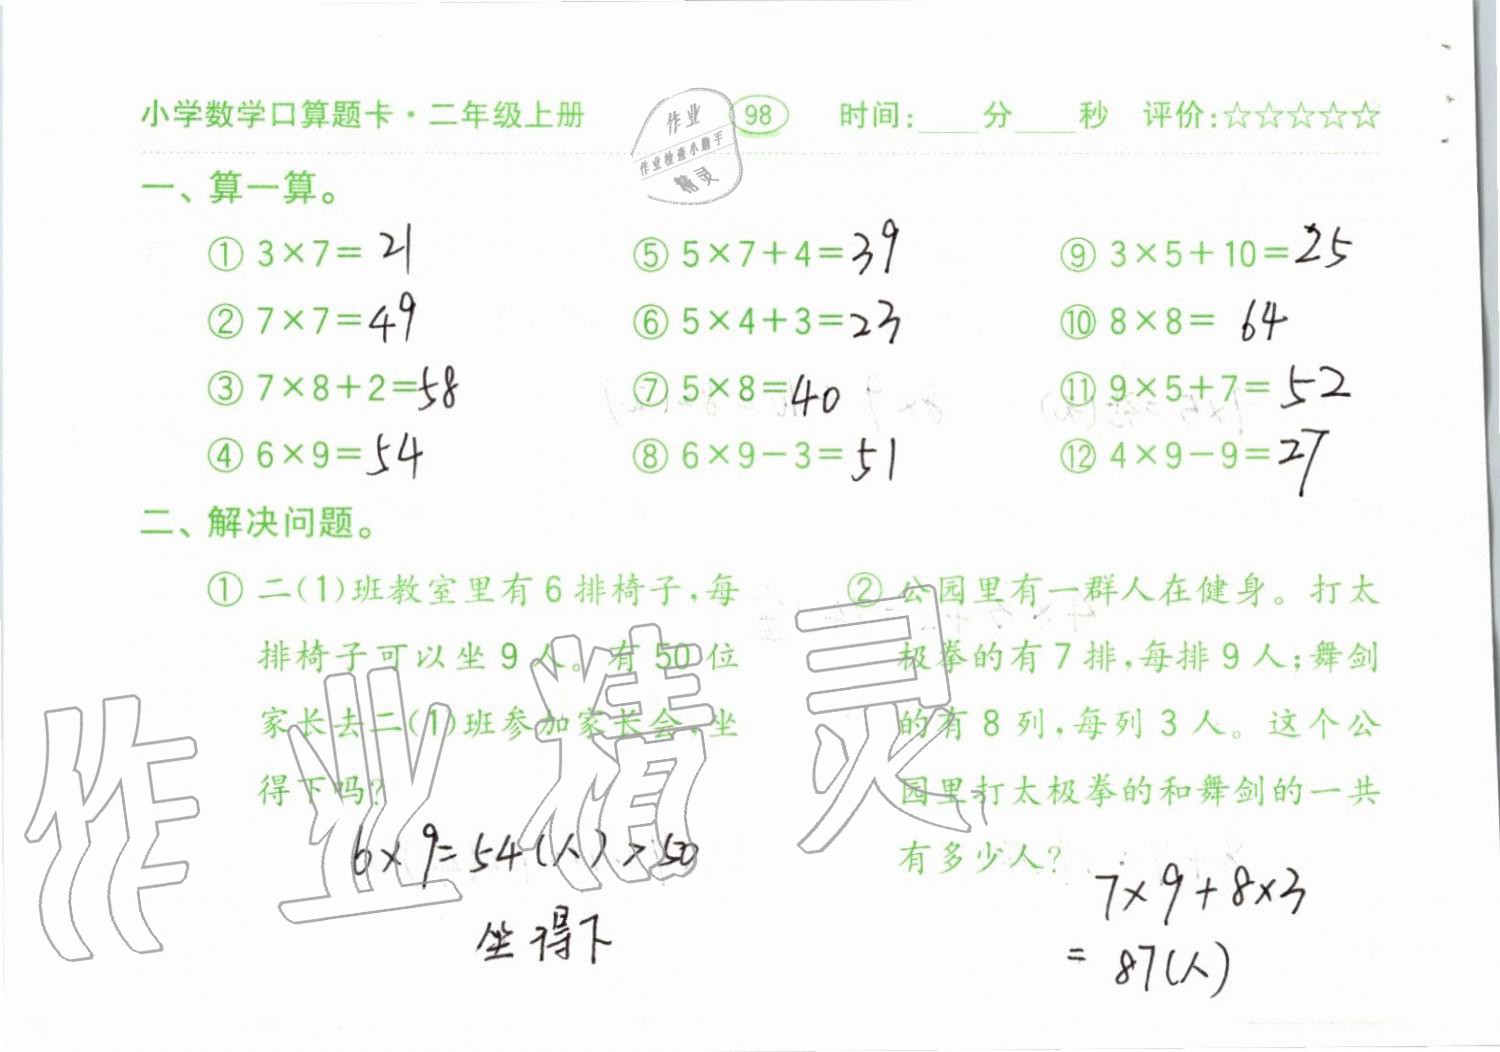 小学数学口算题卡·二年级上册 98 时间:____分____秒 评价:☆☆☆☆☆
作业
作业检查小助手
精灵
一、算一算。
① 3×7= 21 ⑤ 5×7+4=39 ⑨ 3×5+10=25
② 7×7=49 ⑥ 5×4+3=23 ⑩ 8×8= 64
③ 7×8+2=58 ⑦ 5×8=40 ⑪ 9×5+7=52
④ 6×9=54 ⑧ 6×9-3=51 ⑫ 4×9-9=27
二、解决问题。
① 二(1)班教室里有6排椅子,每
排椅子可以坐9人。有50位
家长去二(1)班参加家长会,坐
得下吗?
6×9=54(人)>50
坐得下
② 公园里有一群人在健身。打太
极拳的有7排,每排9人;舞剑
的有8列,每列3人。这个公
园里打太极拳的和舞剑的一共
有多少人?
7×9+8×3
=87(人)
作业精灵